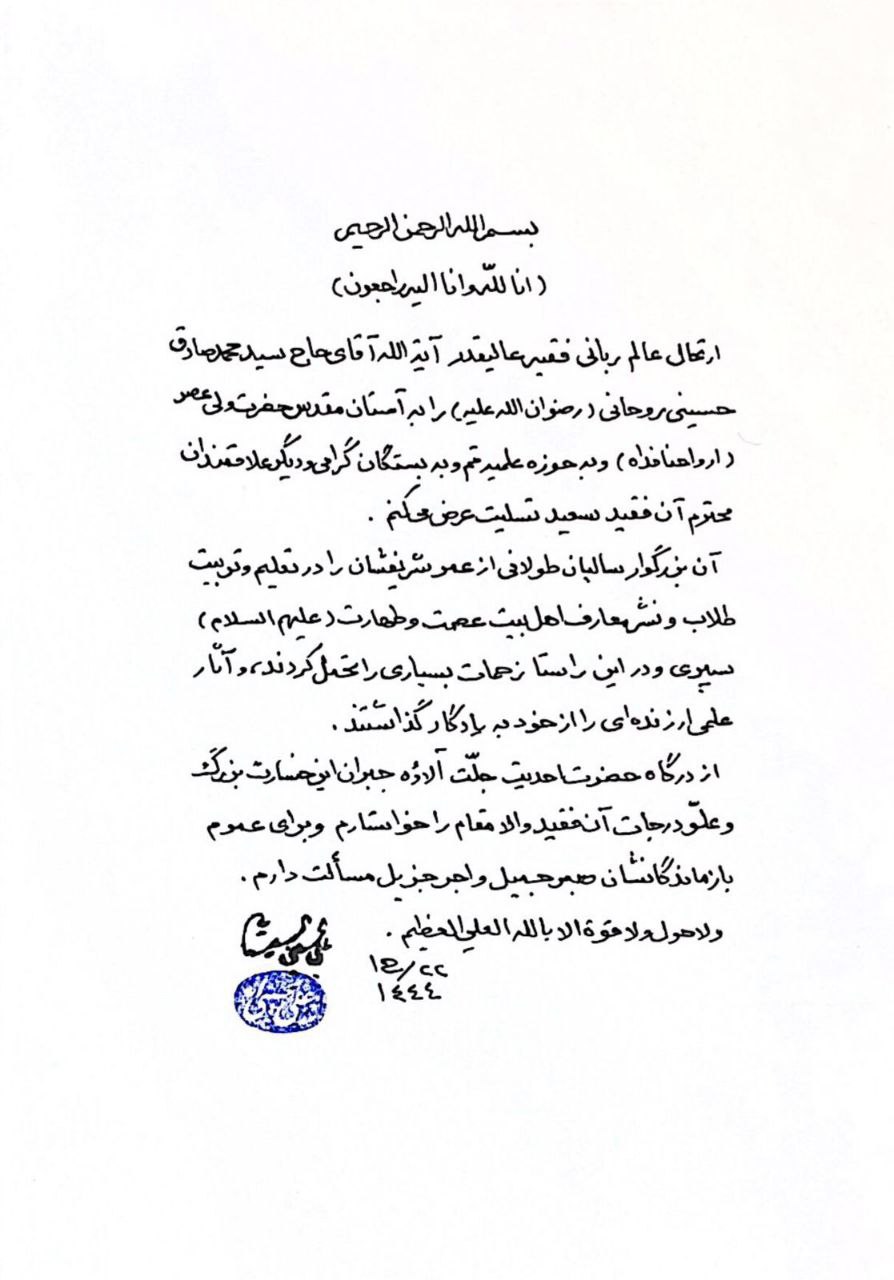 بسم الله الرحمن الرحیم
(انا لله و انا الیه راجعون)
ارتحال عالم ربانی فقیه عالیقدر آیة الله آقای حاج سید محمد صادق
حسینی روحانی (رضوان الله علیه) را به آستان مقدس حضرت ولی عصر
(ارواحنا فداه) و به حوزه علمیه قم و به بستگان گرامی و دیگر علاقمندان
محترم آن فقید سعید تسلیت عرض می‌کنم .
آن بزرگوار سالیان طولانی از عمر شریفشان را در تعلیم و تربیت
طلاب و نشر معارف اهل بیت عصمت و طهارت (علیهم السلام)
سپری و در این راستا زحمات بسیاری را تحمل کردند، و آثار
علمی ارزنده‌ای را از خود به یادگار گذاشتند .
از درگاه حضرت احدیت جلّت آلاؤه جبران این خسارت بزرگ
و علوّ درجات آن فقید والا مقام را خواستارم و برای عموم
بازماندگانشان صبر جمیل و اجر جزیل مسألت دارم .
ولا حول ولا قوة الا بالله العلي العظیم .
علي الحسیني السیستاني
٢٢/ج١
١٤٤٤